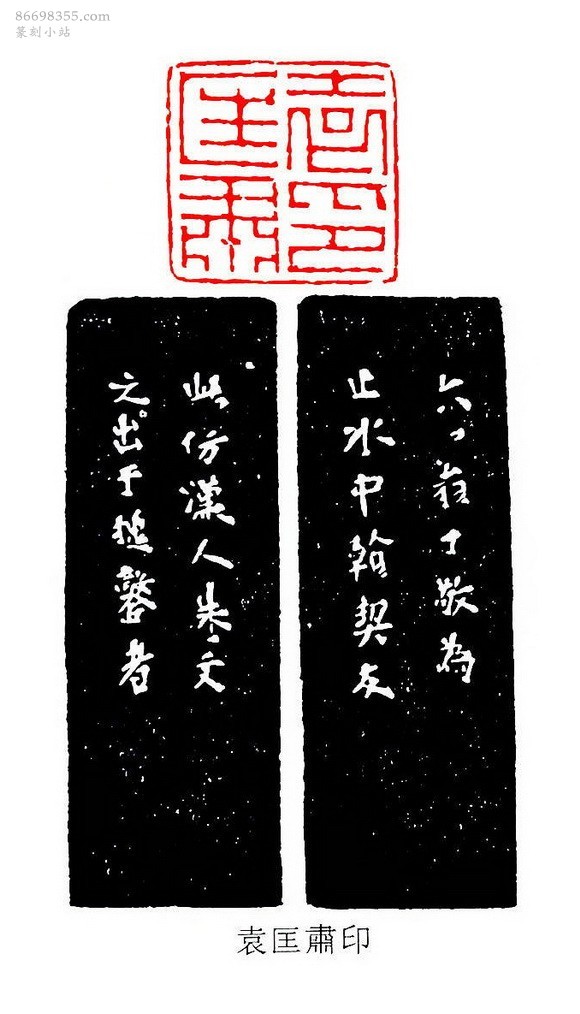 86698355.com
篆刻小站
袁印
匡肅
六八翁丁敬為
止水中翰契友
此仿漢人朱文
之出于搥鑿者
袁匡肅印